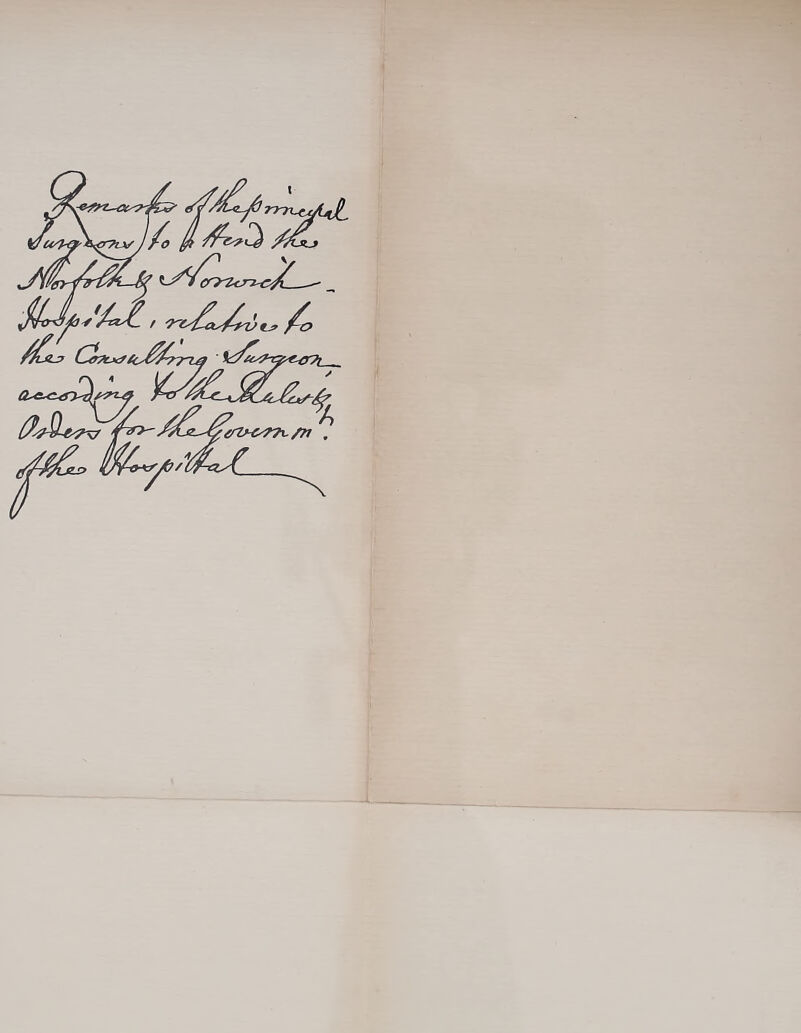 Remarks of the principal
Surgeons to attend the
Norfolk & Norwich
Hospital, relative to
the Consulting Surgeon,
according to the Rules &
Orders for the Governmt.
of the Hospital